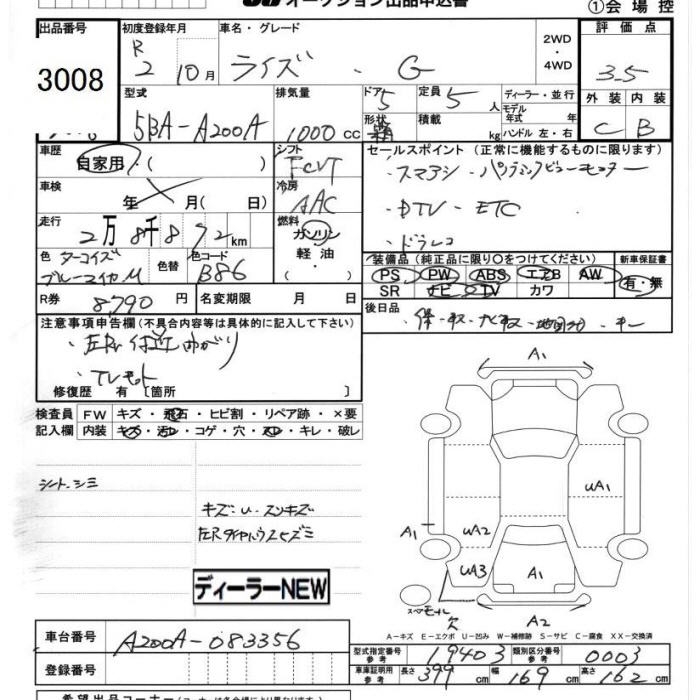 オークション出品申込書
①会場控
出品番号
3008
初度登録年月
R 2 10月
車名・グレード
ライズ ・ G
2WD
・
4WD
評価点
3.5
外装 内装
C B
型式
5BA-A200A
排気量
1000 cc
ドア 5
形状
定員 5 人
積載 kg
ディーラー・並行
モデル年式 年式
ハンドル 左・右
車歴
自家用・( )
車検
年 月(日)
走行
2万8千872km
色 ターコイズブルーマイカM
色替
色コード
B86
シフト
FCVT
冷房
AAC
燃料
ガソリン
軽油
・
( )
セールスポイント(正常に機能するものに限ります)
・スマアシ・パノラミックビューモニター
・DTV・ETC
・ドラレコ
装備品(純正品に限り○をつけてください)
PS PW ABS エアB AW
SR ナビ TV カワ
新車保証書
有・無
R券 8,790 円
名変期限 月 日
後日品
・保・取・ナビ取・
注意事項申告欄(不具合内容等は具体的に記入して下さい)
修復歴 有〔箇所 〕
検査員
記入欄
FW キズ・飛石・ヒビ割・リペア跡・×要
内装 キズ・汚レ・コゲ・穴・スレ・キレ・破レ
シートシミ
キズ・U・スリキズ
ディーラーNEW
A1
UA1
A1
UA2
UA3
A1
A2
欠
A-キズ E-エクボ U-凹み W-補修跡 S-サビ C-腐食 XX-交換済
車台番号
A200A-083356
登録番号
型式指定番号
参考
19403
類別区分番号
参考
0003
車庫証明用
参考
長さ 399 cm
幅 169 cm
高さ 162 cm
希望出品コーナー